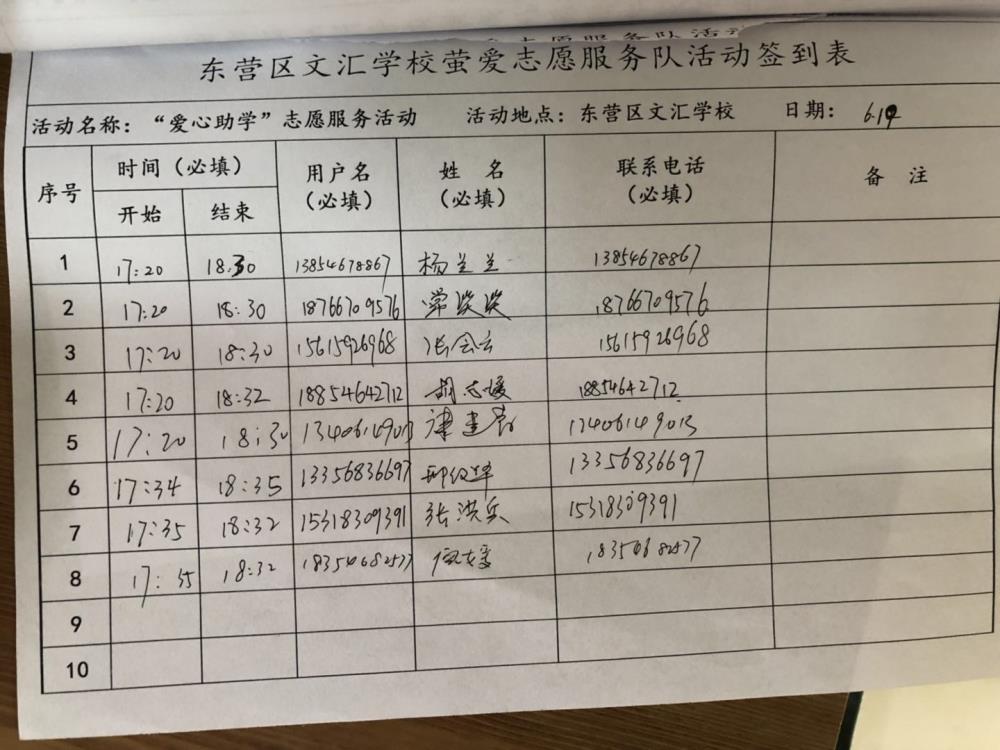 东营区文汇学校萤爱志愿服务队活动签到表
活动名称：“爱心助学”志愿服务活动 活动地点：东营区文汇学校 日期：
序号 时间（必填） 用户名（必填） 姓 名（必填） 联系电话（必填） 备 注
开始 结束
1 17:20 18:30 13854678867 杨兰兰 13854678867
2 17:20 18:30 18766709576 常 18766709576
3 17:20 18:30 15615926968 张会云 15615926968
4 17:20 18:32 18854642712 胡志媛 18854642712
5 17:20 18:30 13406149013 13406149013
6 17:34 18:35 13356836697 13356836697
7 17:35 18:32 15318309391 张洪兵 15318309391
8 17:35 18:32 18354682577 18354682577
9
10